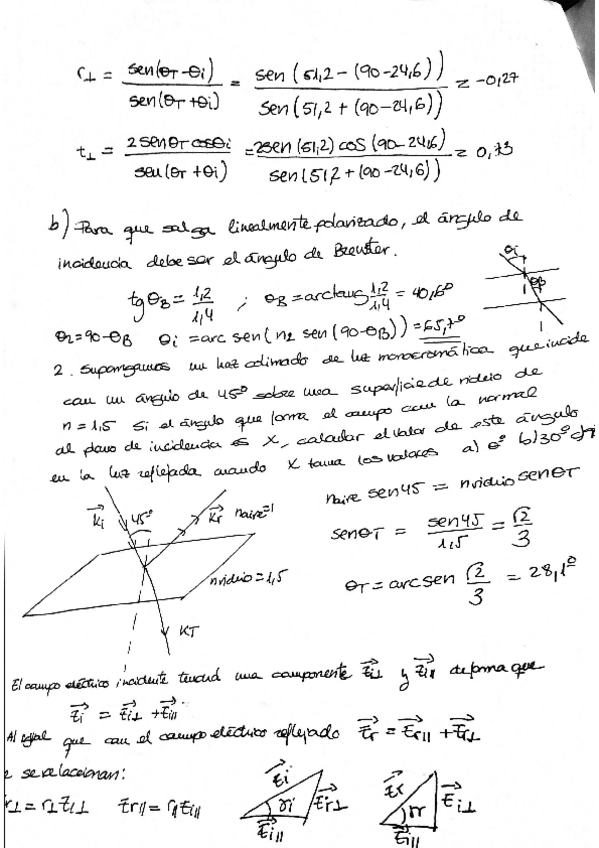 r⊥ = sen(θT-θi) / sen(θT+θi) = sen(51,2-(90-24,6)) / sen(51,2+(90-24,6)) ≈ -0,27
t⊥ = 2senθT cosθi / sen(θT+θi) = 2sen(51,2)cos(90-24,6) / sen(51,2+(90-24,6)) ≈ 0,73
b) Para que salga linealmente polarizado, el ángulo de
incidencia debe ser el ángulo de Brewster.
θi
θB
tgθB = 1,2/1,4 ; θB = arctang 1,2/1,4 = 40,6º
θ2=90-θB θi = arc sen(n2 sen(90-θB)) = 65,7º
2. Supongamos un haz colimado de luz monocromática que incide
con un ángulo de 45º sobre una superficie de vidrio de
n = 1,5 si el ángulo que forma el campo con la normal
al plano de incidencia es X, calcular el valor de este ángulo
en la luz reflejada cuando X toma los valores a) 0º b) 30º
naire sen45 = nvidrio senθT
senθT = sen45/1,5 = √2/3
θT = arcsen √2/3 = 28,1º
Ki 45º Kr naire=1
nvidrio=1,5
KT
El campo eléctrico incidente tendrá una componente Ei⊥ y Ei∥ de forma que
Ei = Ei⊥ + Ei∥
Al igual que con el campo eléctrico reflejado Er = Er∥ + Er⊥
se relacionan:
r⊥ = r⊥Ei⊥ Er∥ = r∥Ei∥
Ei γi Er⊥ Ei∥
Er γr Ei⊥ Ei∥